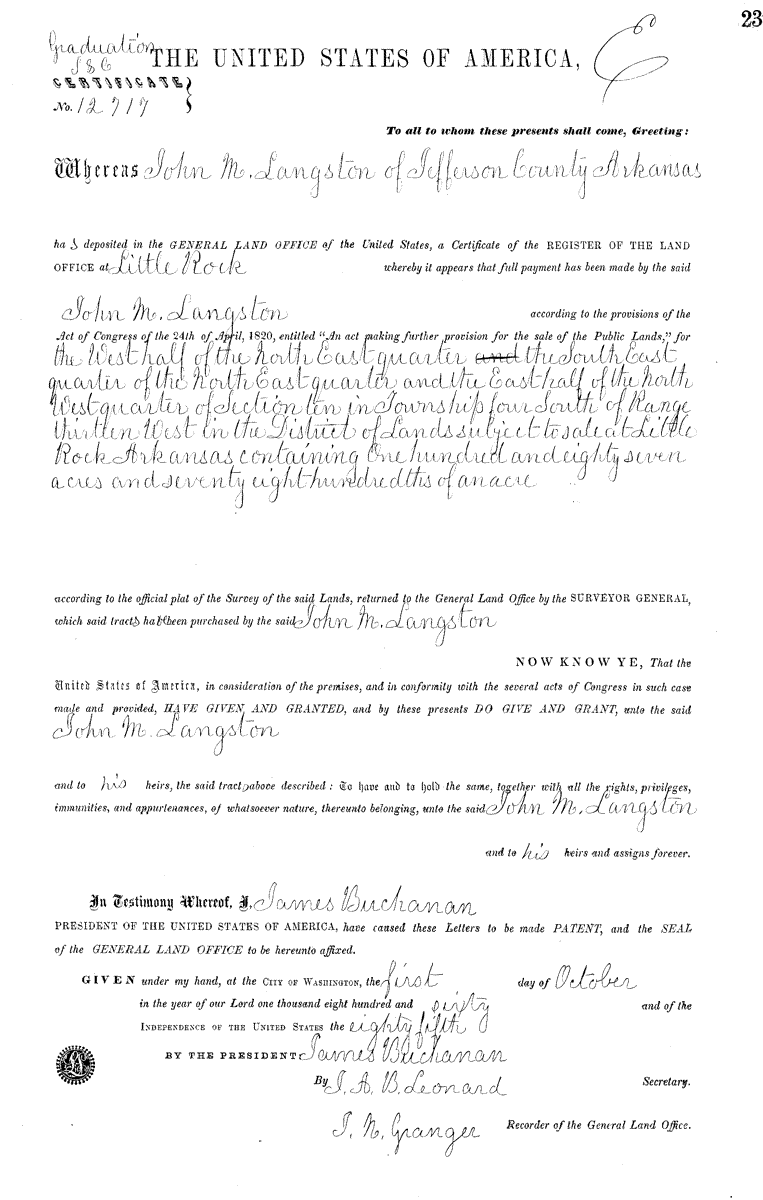 23
Graduation
186
THE UNITED STATES OF AMERICA,
CERTIFICATE
No. 12717
To all to whom these presents shall come, Greeting:
Whereas John M. Langston of Jefferson County Arkansas
ha s deposited in the GENERAL LAND OFFICE of the United States, a Certificate of the REGISTER OF THE LAND
OFFICE at Little Rock whereby it appears that full payment has been made by the said
John M. Langston according to the provisions of the
Act of Congress of the 24th of April, 1820, entitled "An act making further provision for the sale of the Public Lands," for
the West half of the North East quarter and the South East
quarter of the North East quarter and the East half of the North
West quarter of Section ten in Township four South of Range
thirteen West in the District of Lands subject to sale at Little
Rock Arkansas containing One hundred and eighty seven
acres and seventy eight hundredths of an acre
according to the official plat of the Survey of the said Lands, returned to the General Land Office by the SURVEYOR GENERAL,
which said tracts been purchased by the said John M. Langston
NOW KNOW YE, That the
United States of America, in consideration of the premises, and in conformity with the several acts of Congress in such case
made and provided, HAVE GIVEN AND GRANTED, and by these presents DO GIVE AND GRANT, unto the said
John M. Langston
and to his heirs, the said tracts above described: To have and to hold the same, together with all the rights, privileges,
immunities, and appurtenances, of whatsoever nature, thereunto belonging, unto the said John M. Langston
and to his heirs and assigns forever.
In Testimony Whereof, I, James Buchanan
PRESIDENT OF THE UNITED STATES OF AMERICA, have caused these Letters to be made PATENT, and the SEAL
of the GENERAL LAND OFFICE to be hereunto affixed.
GIVEN under my hand, at the CITY OF WASHINGTON, the first day of October
in the year of our Lord one thousand eight hundred and sixty and of the
INDEPENDENCE OF THE UNITED STATES the eighty fifth
BY THE PRESIDENT: James Buchanan
By J. A. B. Leonard Secretary.
J. N. Granger Recorder of the General Land Office.